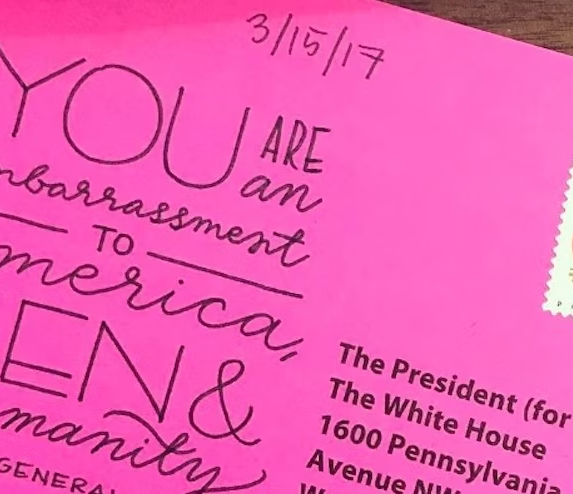 3/15/17
YOU ARE
an
mbarrassment
TO
merica,
EN &
manity
GENERAL
The President (for
The White House
1600 Pennsylvania
Avenue NW